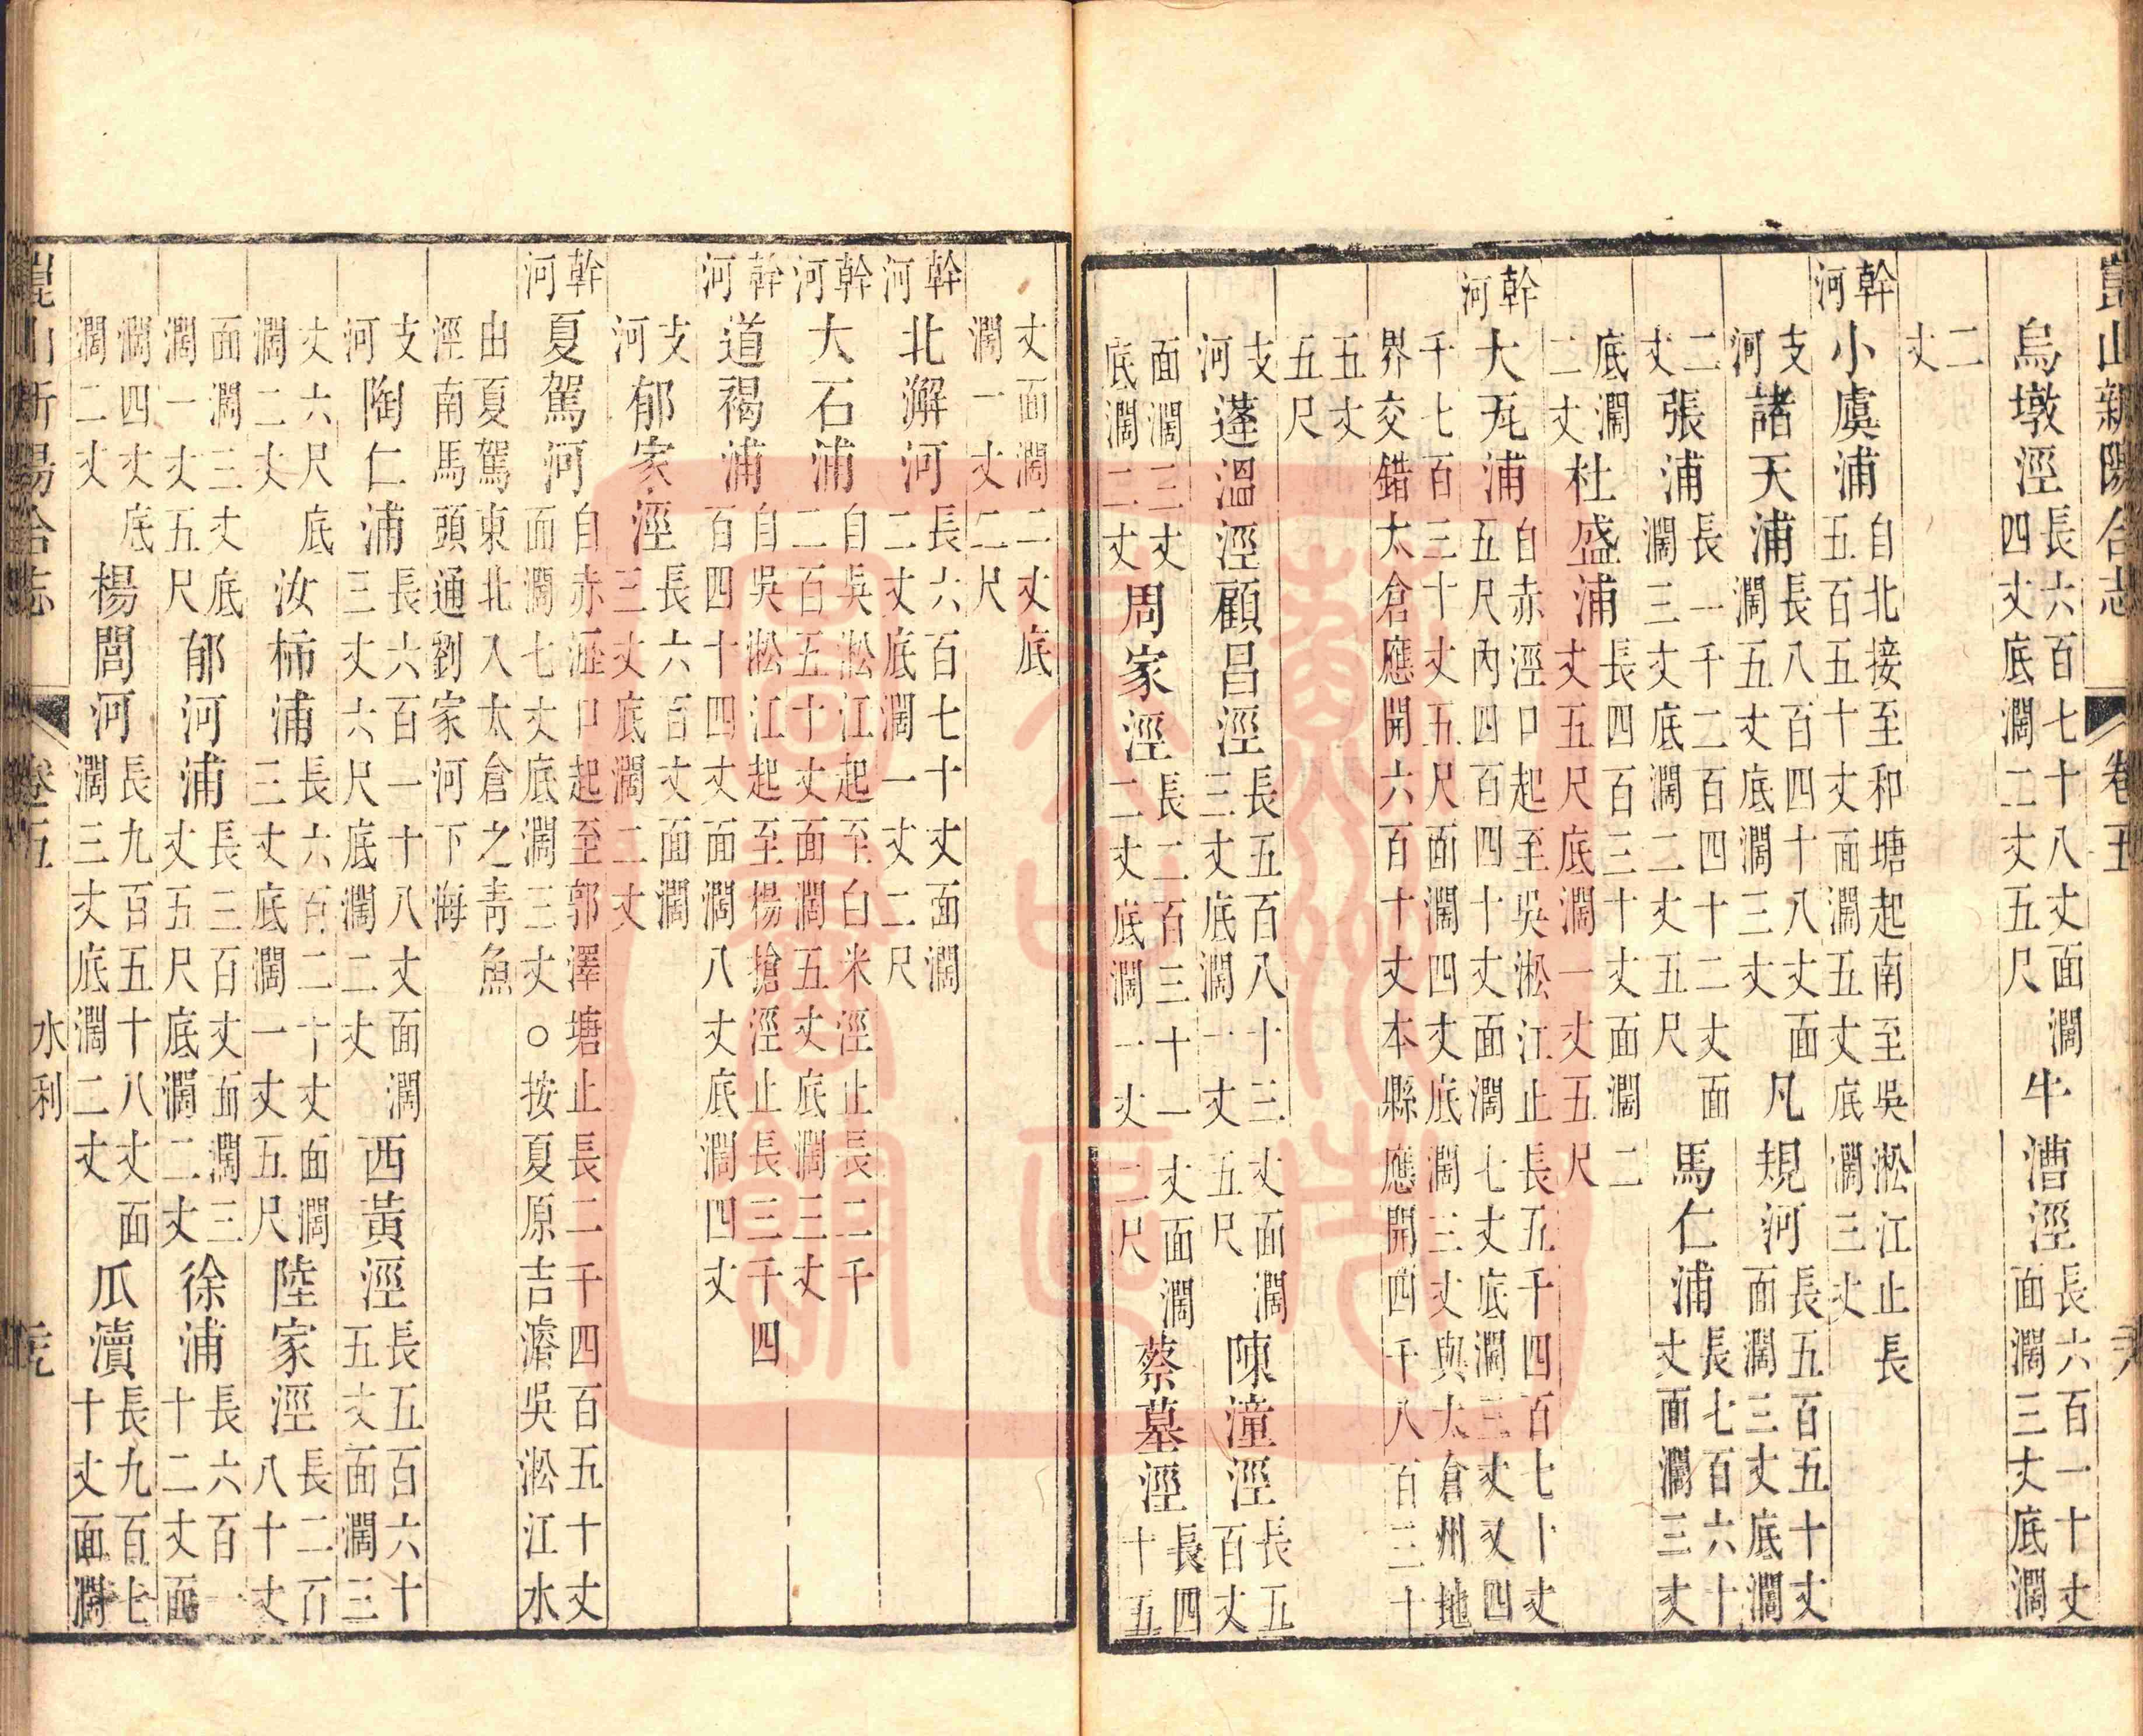 崑山新陽合志　卷五
烏墩涇長六百七十八丈面濶四丈底濶二丈五尺牛漕涇長六百一十丈面濶三丈底濶
二丈
幹河小虞浦自北接至和塘起南至吳淞江止長五百五十丈面濶五丈底濶三丈
支河諸天浦長八百四十八丈面濶五丈底濶三丈凡規河長五百五十丈面濶三丈底濶
二丈張浦長一千二百四十二丈面濶三丈底濶二丈五尺馬仁浦長七百六十丈面濶三丈
底濶二丈杜盛浦長四百三十丈面濶二丈五尺底濶一丈五尺
幹河大瓦浦自赤涇口起至吳淞江止長五千四百七十丈五尺內四百四十丈面濶七丈底濶三丈又四
千七百三十丈五尺面濶四丈底濶三丈與太倉州地界交錯太倉應開六百十丈本縣應開四千八百二十
五丈五尺
支河蓬溫涇顧昌涇長五百八十三丈面濶三丈底濶一丈五尺陳潼涇長五百丈
面濶三丈底濶二丈周家涇長二百三十一丈面濶二丈底濶一丈二尺蔡墓涇長四十五
丈面濶二丈底濶一丈二尺
幹河北澥河長六百七十丈面濶二丈底濶一丈二尺
幹河大石浦自吳淞江起至白米涇止長二千二百五十丈面濶五丈底濶三丈
幹河道褐浦自吳淞江起至楊搶涇止長三千四百四十四丈面濶八丈底濶四丈
支河郁家涇長六百丈面濶三丈底濶二丈
幹河夏駕河自赤涇口起至郭澤塘止長二千四百五十丈面濶七丈底濶三丈○按夏原吉濬吳淞江水
由夏駕東北入太倉之青魚涇南馬頭通劉家河下海
支河陶仁浦長六百一十八丈面濶三丈六尺底濶二丈西黃涇長五百六十五丈面濶三
丈六尺底濶二丈汝柿浦長六百二十丈面濶三丈底濶一丈五尺陸家涇長二百八十丈
面濶三丈底濶一丈五尺郁河浦長三百丈面濶三丈五尺底濶二丈徐浦長六百一十二丈面
濶四丈底濶二丈楊閭河長九百五十八丈面濶三丈底濶二丈瓜瀆長九百七十丈面濶
崑山新陽合志　卷五　水利